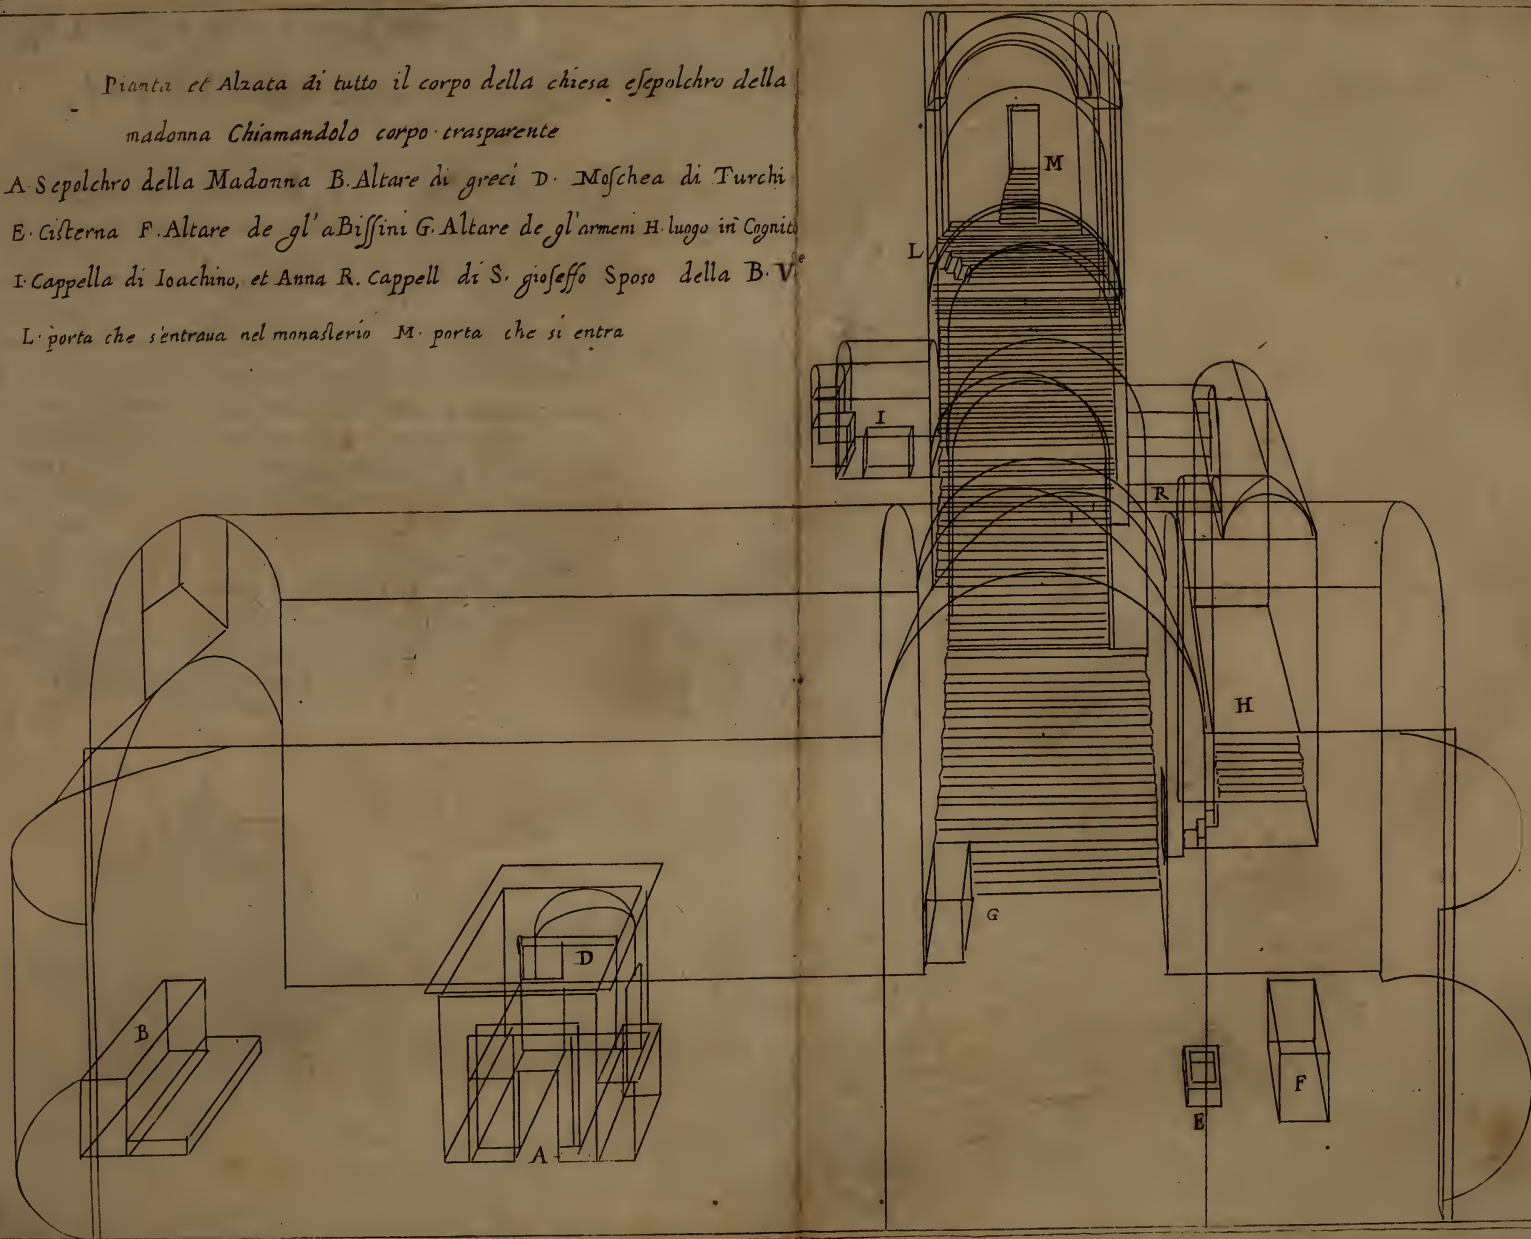 Pianta et Alzata di tutto il corpo della chiesa eſepolchro della
madonna Chiamandolo corpo trasparente
A Sepolchro della Madonna B. Altare di greci D. Moſchea di Turchi
E. Ciſterna F. Altare de gl' aBiſſini G. Altare de gl'armeni H. luogo in Cognito
I. Cappella di Ioachino, et Anna R. Cappell di S. gioſeffo Sposo della B. Vᵉ
L. porta che s'entraua nel monaſterio M. porta che si entra
M
L
I
R
H
G
D
B
F
E
A